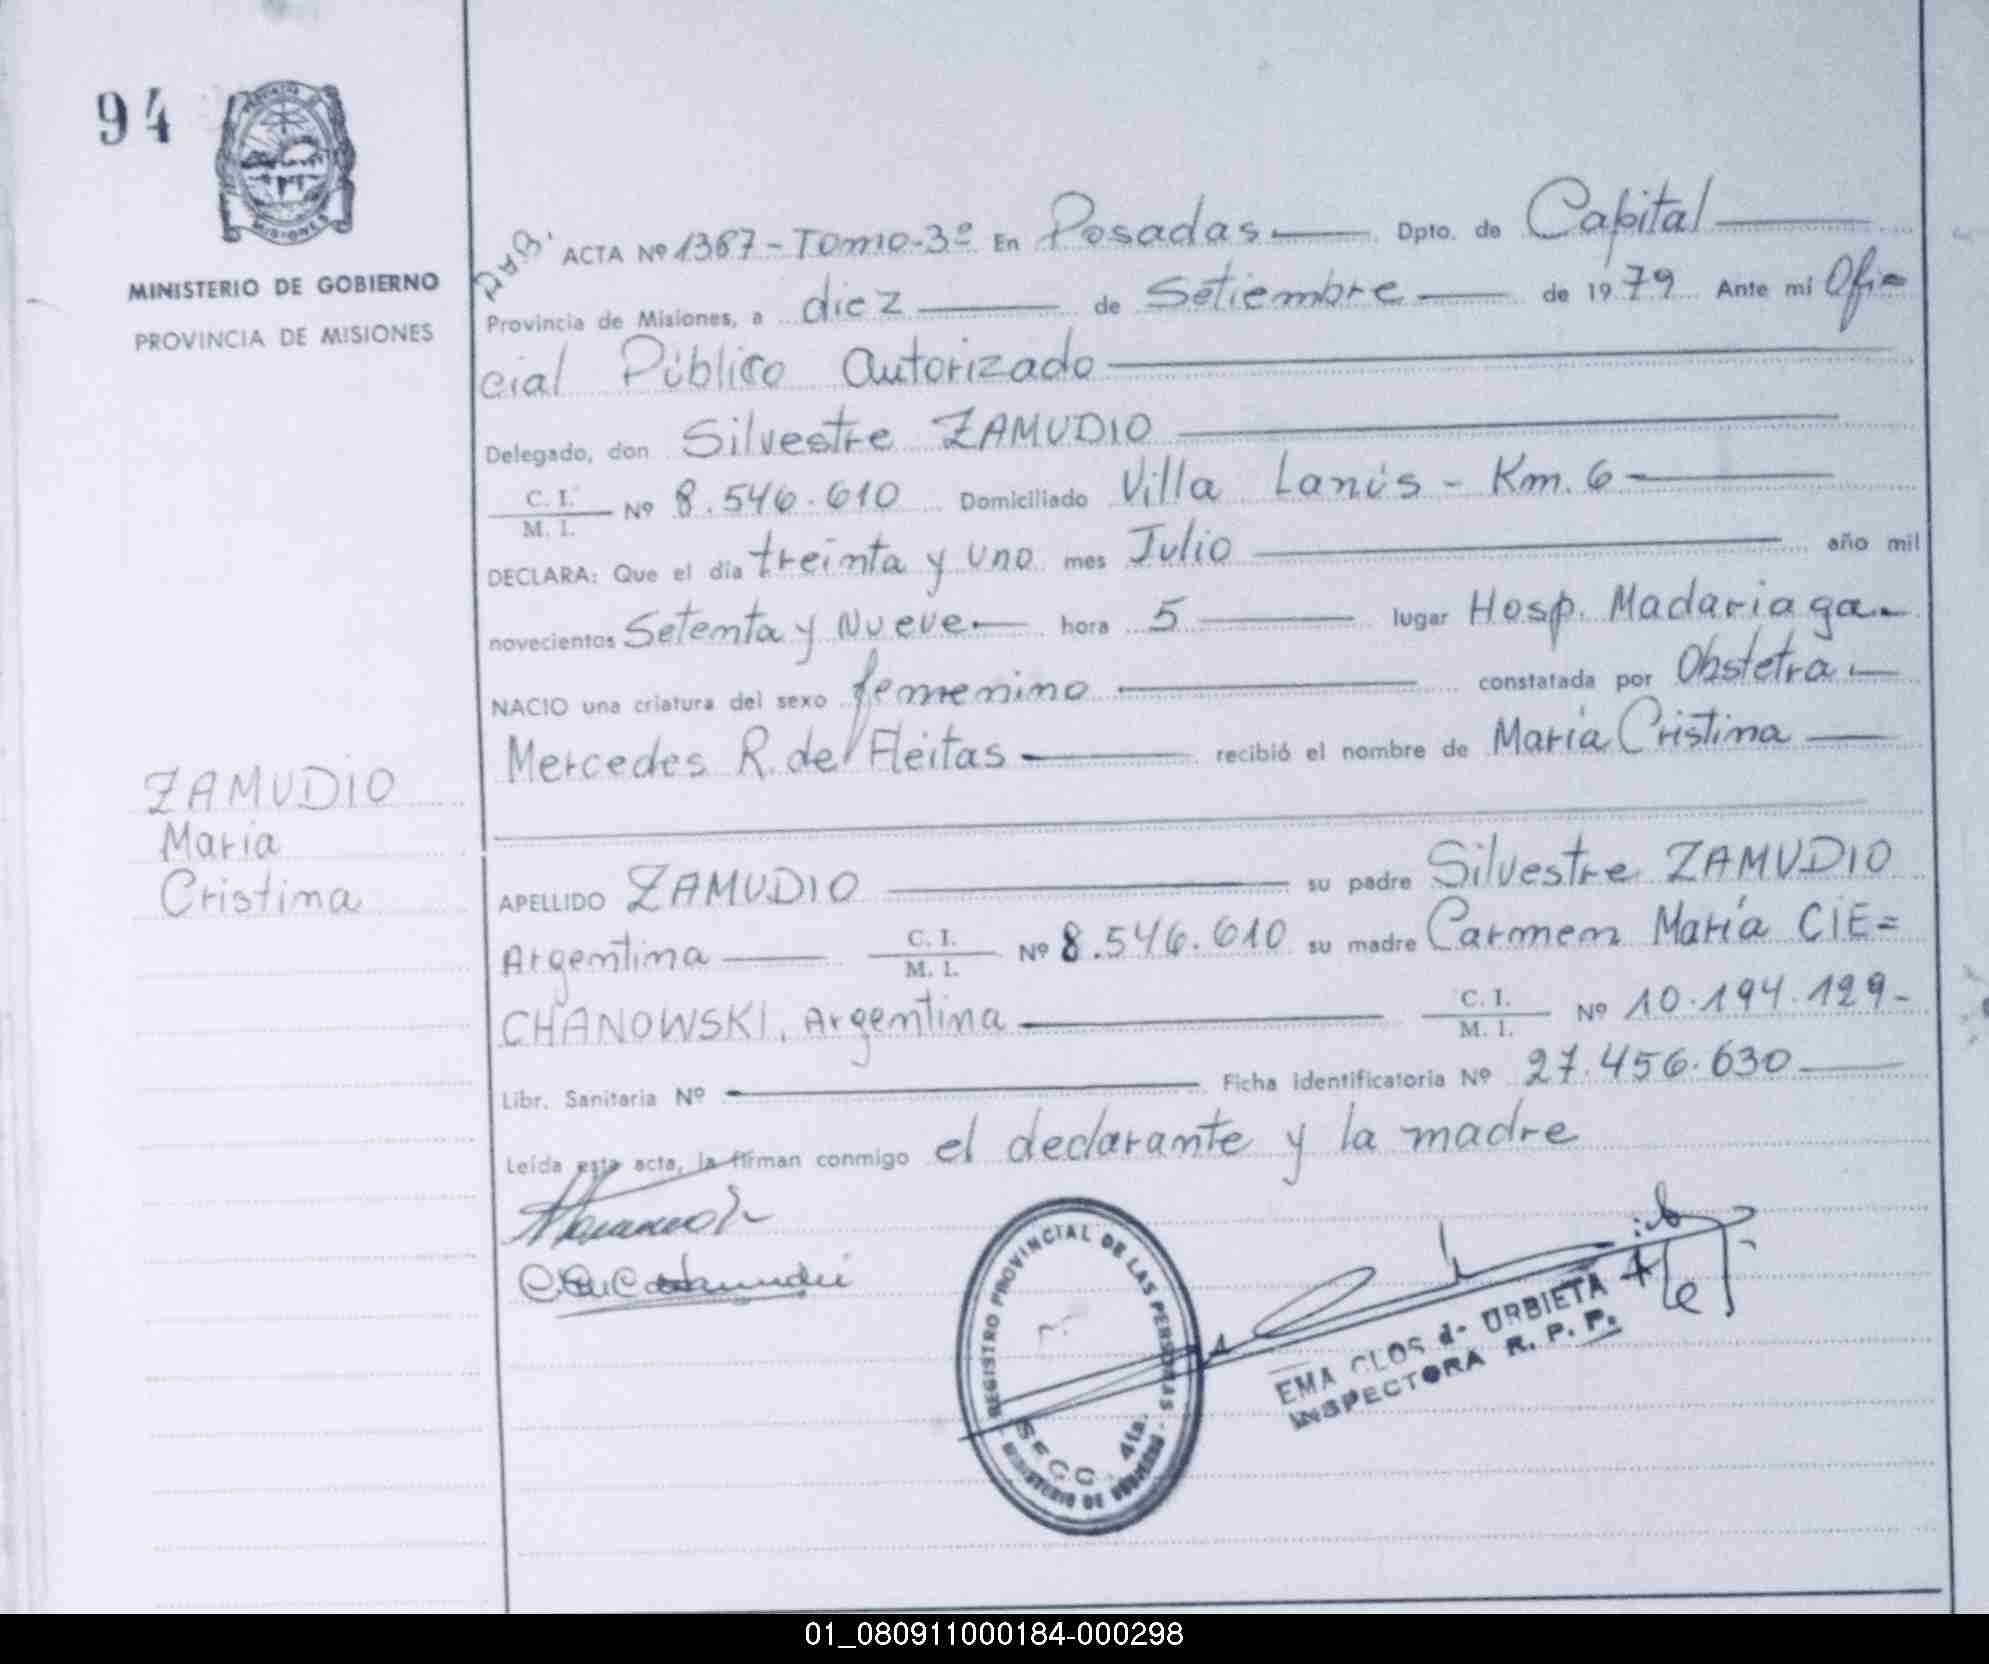 94
PROVINCIA DE
MISIONES
MINISTERIO DE GOBIERNO
PROVINCIA DE MISIONES
ZAMUDIO
Maria
Cristina
ACTA Nº 1367 - Tomo - 3º En Posadas — Dpto. de Capital —
Provincia de Misiones, a diez — de Setiembre — de 1979 Ante mi Ofi=
cial Público Autorizado —
Delegado, don Silvestre ZAMUDIO —
C. I.
M. I. Nº 8.546.610 Domiciliado Villa Lanús - Km. 6 —
DECLARA: Que el día treinta y uno mes Julio — año mil
novecientos Setenta y Nueve — hora 5 — lugar Hosp. Madariaga -
NACIO una criatura del sexo femenino — constatada por Obstetra —
Mercedes R. de Fleitas — recibió el nombre de María Cristina —
APELLIDO ZAMUDIO — su padre Silvestre ZAMUDIO
Argentina — C. I.
M. I. Nº 8.546.610 su madre Carmen María CIE=
CHANOWSKI, Argentina — C. I.
M. I. Nº 10.194.129 -
Libr. Sanitaria Nº — Ficha identificatoria Nº 27.456.630 —
Leída esta acta, la firman conmigo el declarante y la madre
REGISTRO PROVINCIAL DE LAS PERSONAS
SECC. 4ta.
MINISTERIO DE GOBIERNO
EMA CLOS de URBIETA
INSPECTORA R. P. P.
01_080911000184-000298